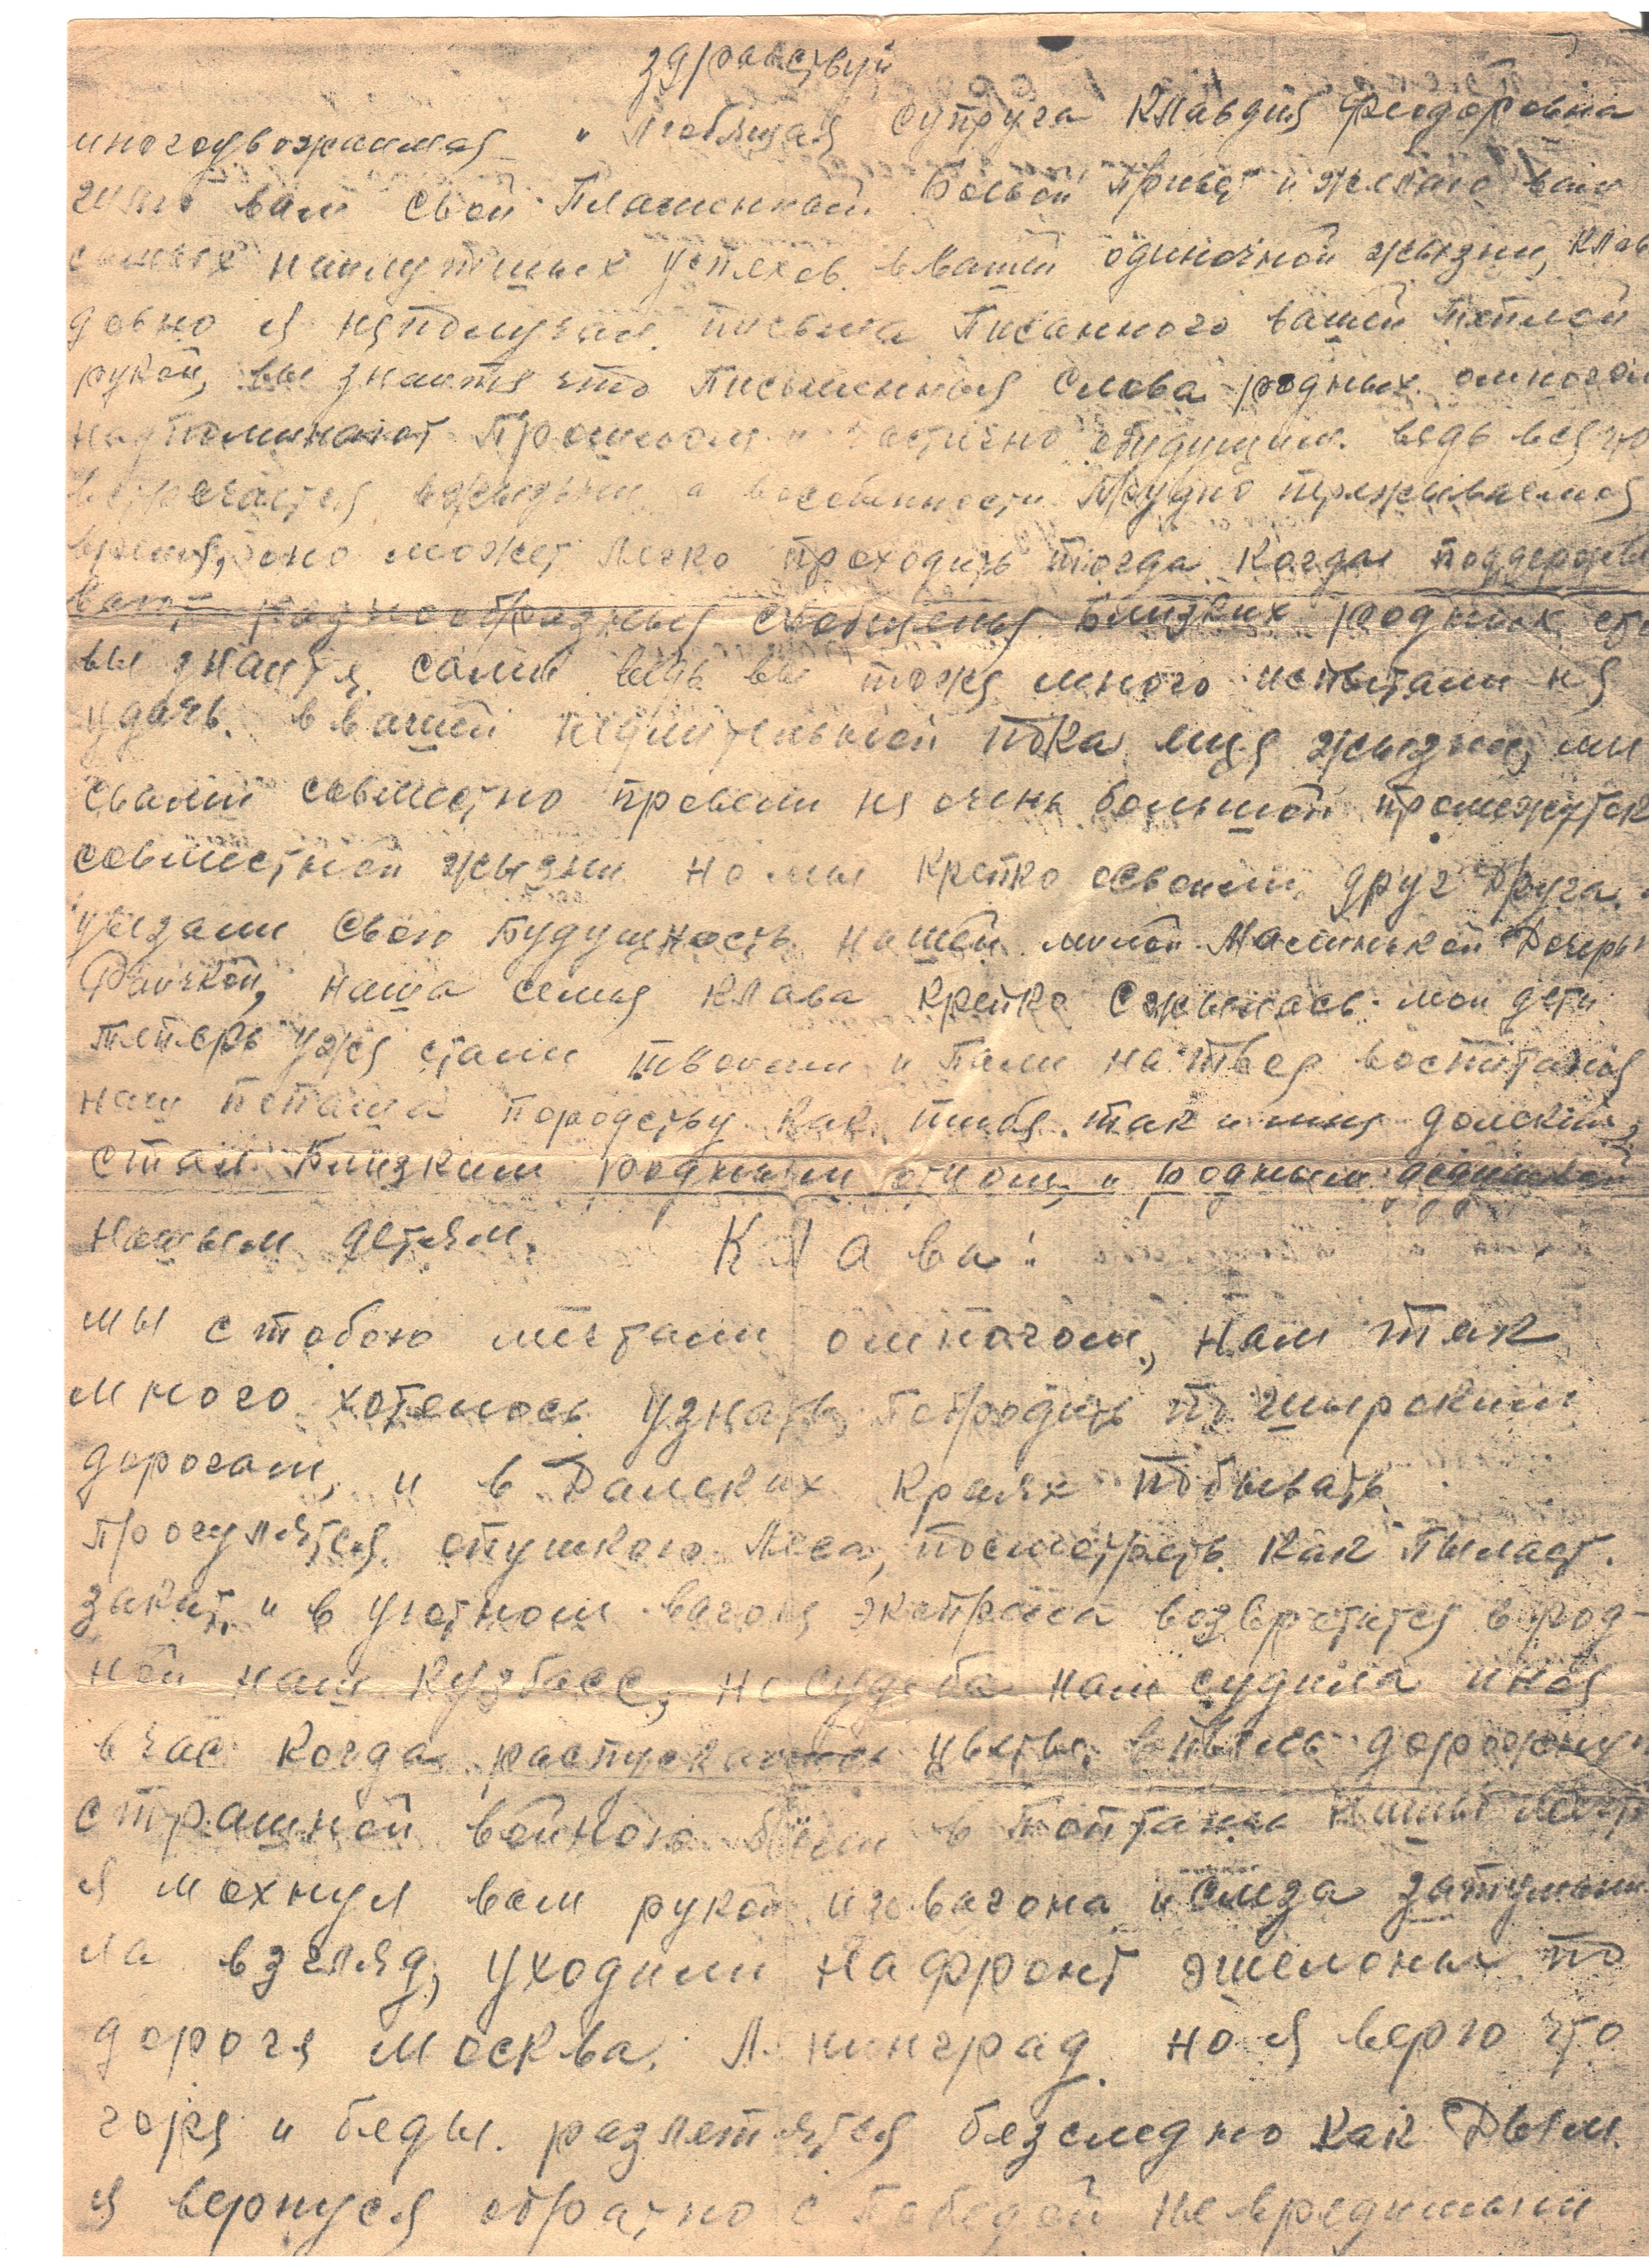 здравствуй
многоувожаимая и Любящая супруга Клавдия Фиодоровна
шлю вам свой Пламенный Боевой Привет и желаю вам
самых наилутшых успехов в Вашей одиночной жызни, Клав
довно я неполучал письма Писанного вашей Тёплой
рукой, вы знаите что Письменныя Слова родных омногом
надпоминают Прошлом и частично обудущим. ведь все что
встречается вжызни а вособенности Трудно пережываемоя
время, оно может легко проходить тогда когда поддержы
вают разнообразныя сообщенья Близких родных
вы знаитя сами ведь вы тожа много испытали ня
удачь. в вашей пока жызни, мы
свами совместно провели ня очень большой промежуток
совместной жызни но мы крепко освоили друг друга и
увязали Свою Будущность нашей милой Малинькой Дочеры
Раичкой, наша семья Клава крепко Сжылась мои дети
теперь ужя стали твоими и Пали на твоя воспитания
наш Попаша породству как тибя так и миня
стал Близким родным отцом, и родным дедушкой
нашым детям. Клава!
мы с тобою мечтали омногом, нам так
много хотелось узнать Побродить по шыроким
дорогам, и в Далских краях побывать
прогулятся опушкою Леса, посмотреть как Пылает
закат, и в уютном вагоня экспреса возвротится в род-
ной наш Кузбасс, но судьба нам судила иноя
в час когда распускались цветы в пыль дорожную
страшной войною были в топтаны нашы мечты
я мохнул вам рукой из вагона и слеза затумани
ла взгляд, уходили на фронт эшелоны по
дорогя Москва Лнинград но я верю что
горя и беды. разлетятся бязследно как Дым
я вернуся обратно с Победой не вредимым